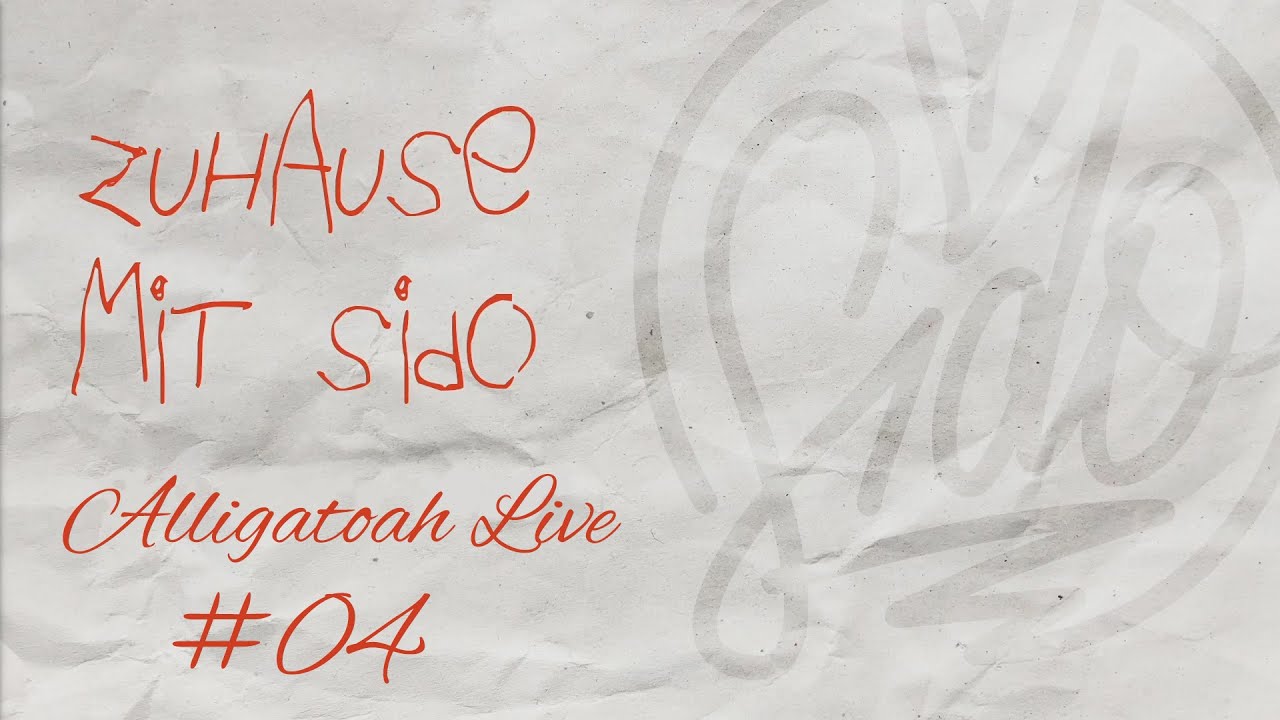 ZUHAUSE
MIT SIDO
Alligatoah Live
#04
Sido